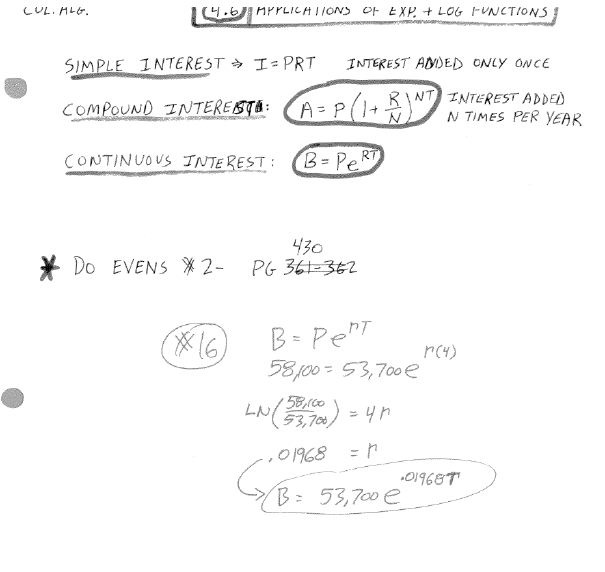 COL. ALG. 4.6 APPLICATIONS OF EXP. + LOG FUNCTIONS
SIMPLE INTEREST → I = PRT INTEREST ADDED ONLY ONCE
COMPOUND INTEREST: A = P(1 + R/N)^NT INTEREST ADDED
N TIMES PER YEAR
CONTINUOUS INTEREST: B = Pe^RT
430
* DO EVENS # 2- PG 361-362
#16 B = Pe^rT
58,100 = 53,700e^r(4)
LN(58,100/53,700) = 4r
.01968 = r
B = 53,700e^.01968T